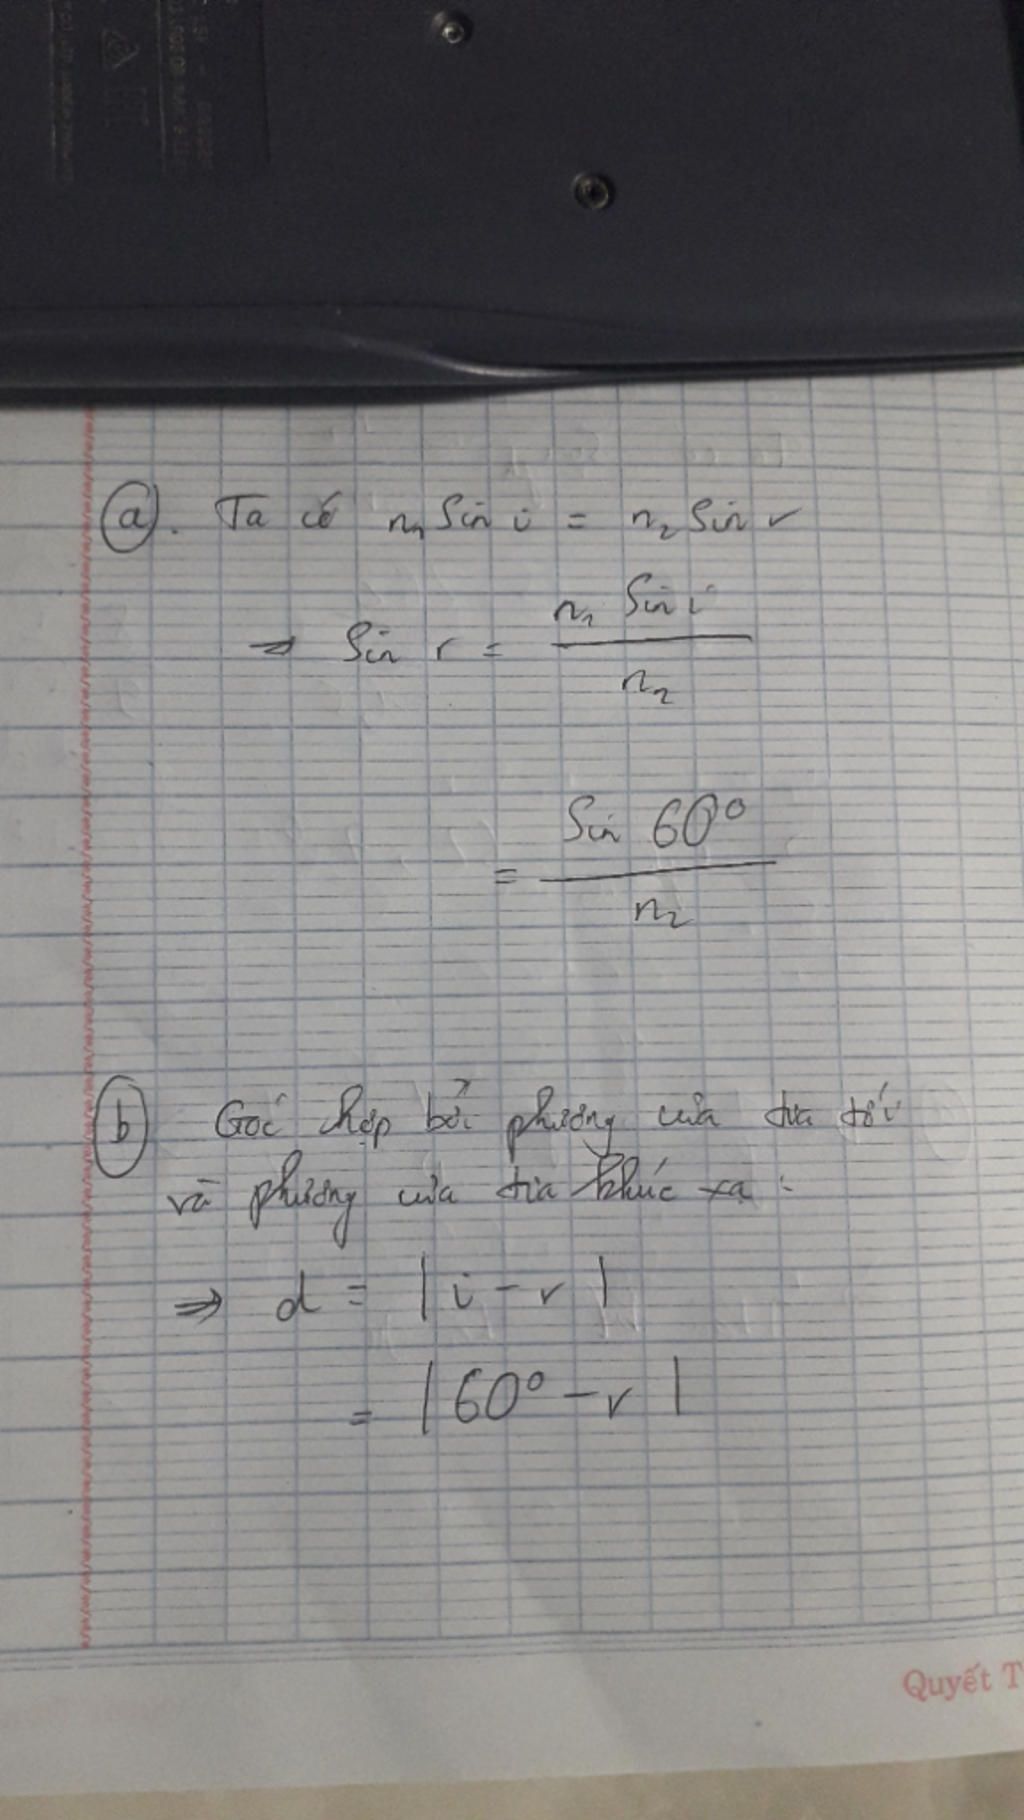 a. Ta có n₁ Sin i = n₂ Sin r
⇒ Sin r = n₁ Sin i / n₂
= Sin 60° / n₂
b Góc hợp bởi phương của tia tới
và phương của tia khúc xạ :
⇒ d = | i - r |
= | 60° - r |
Quyết T